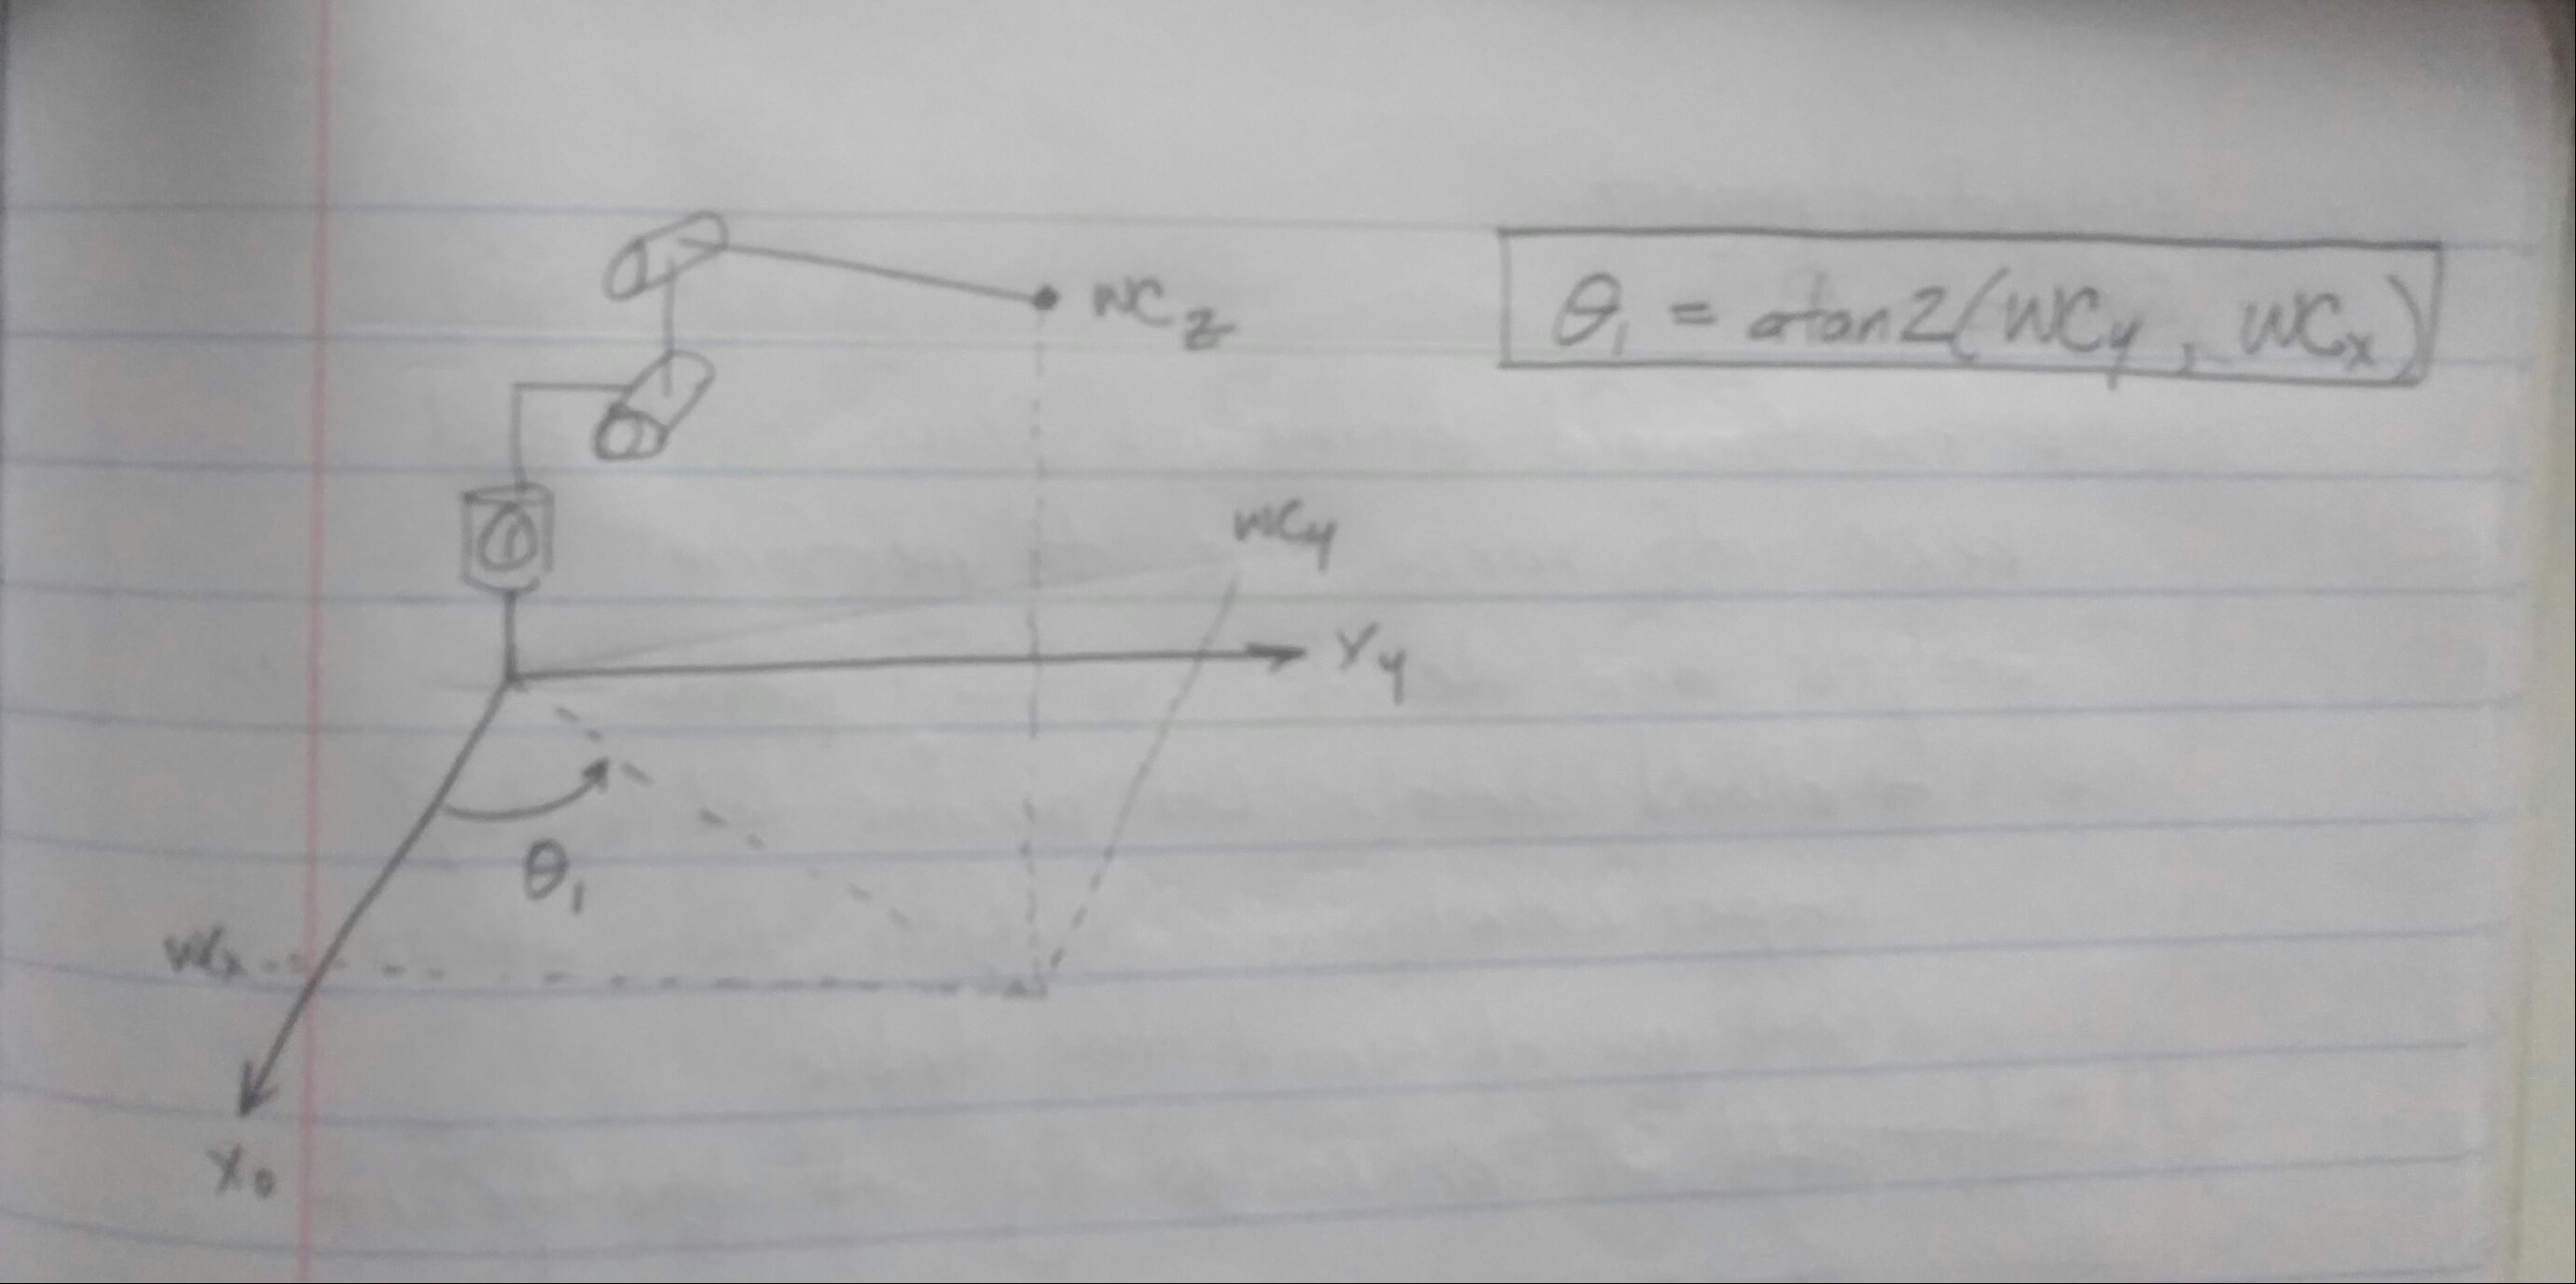 WC_z
θ_1 = atan2(WC_y, WC_x)
2
1
WC_y
Y_y
θ_1
WC_x
X_0